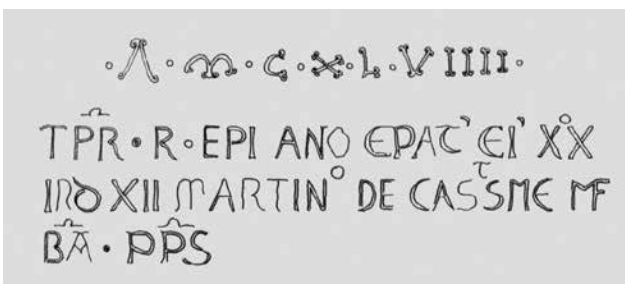 ·A·M·C·X·L·VIIII·
TPR·R·EPI ANO EPAT' EI' XºX
IND XII MARTINº DE CASSTME MF
BA·PPS